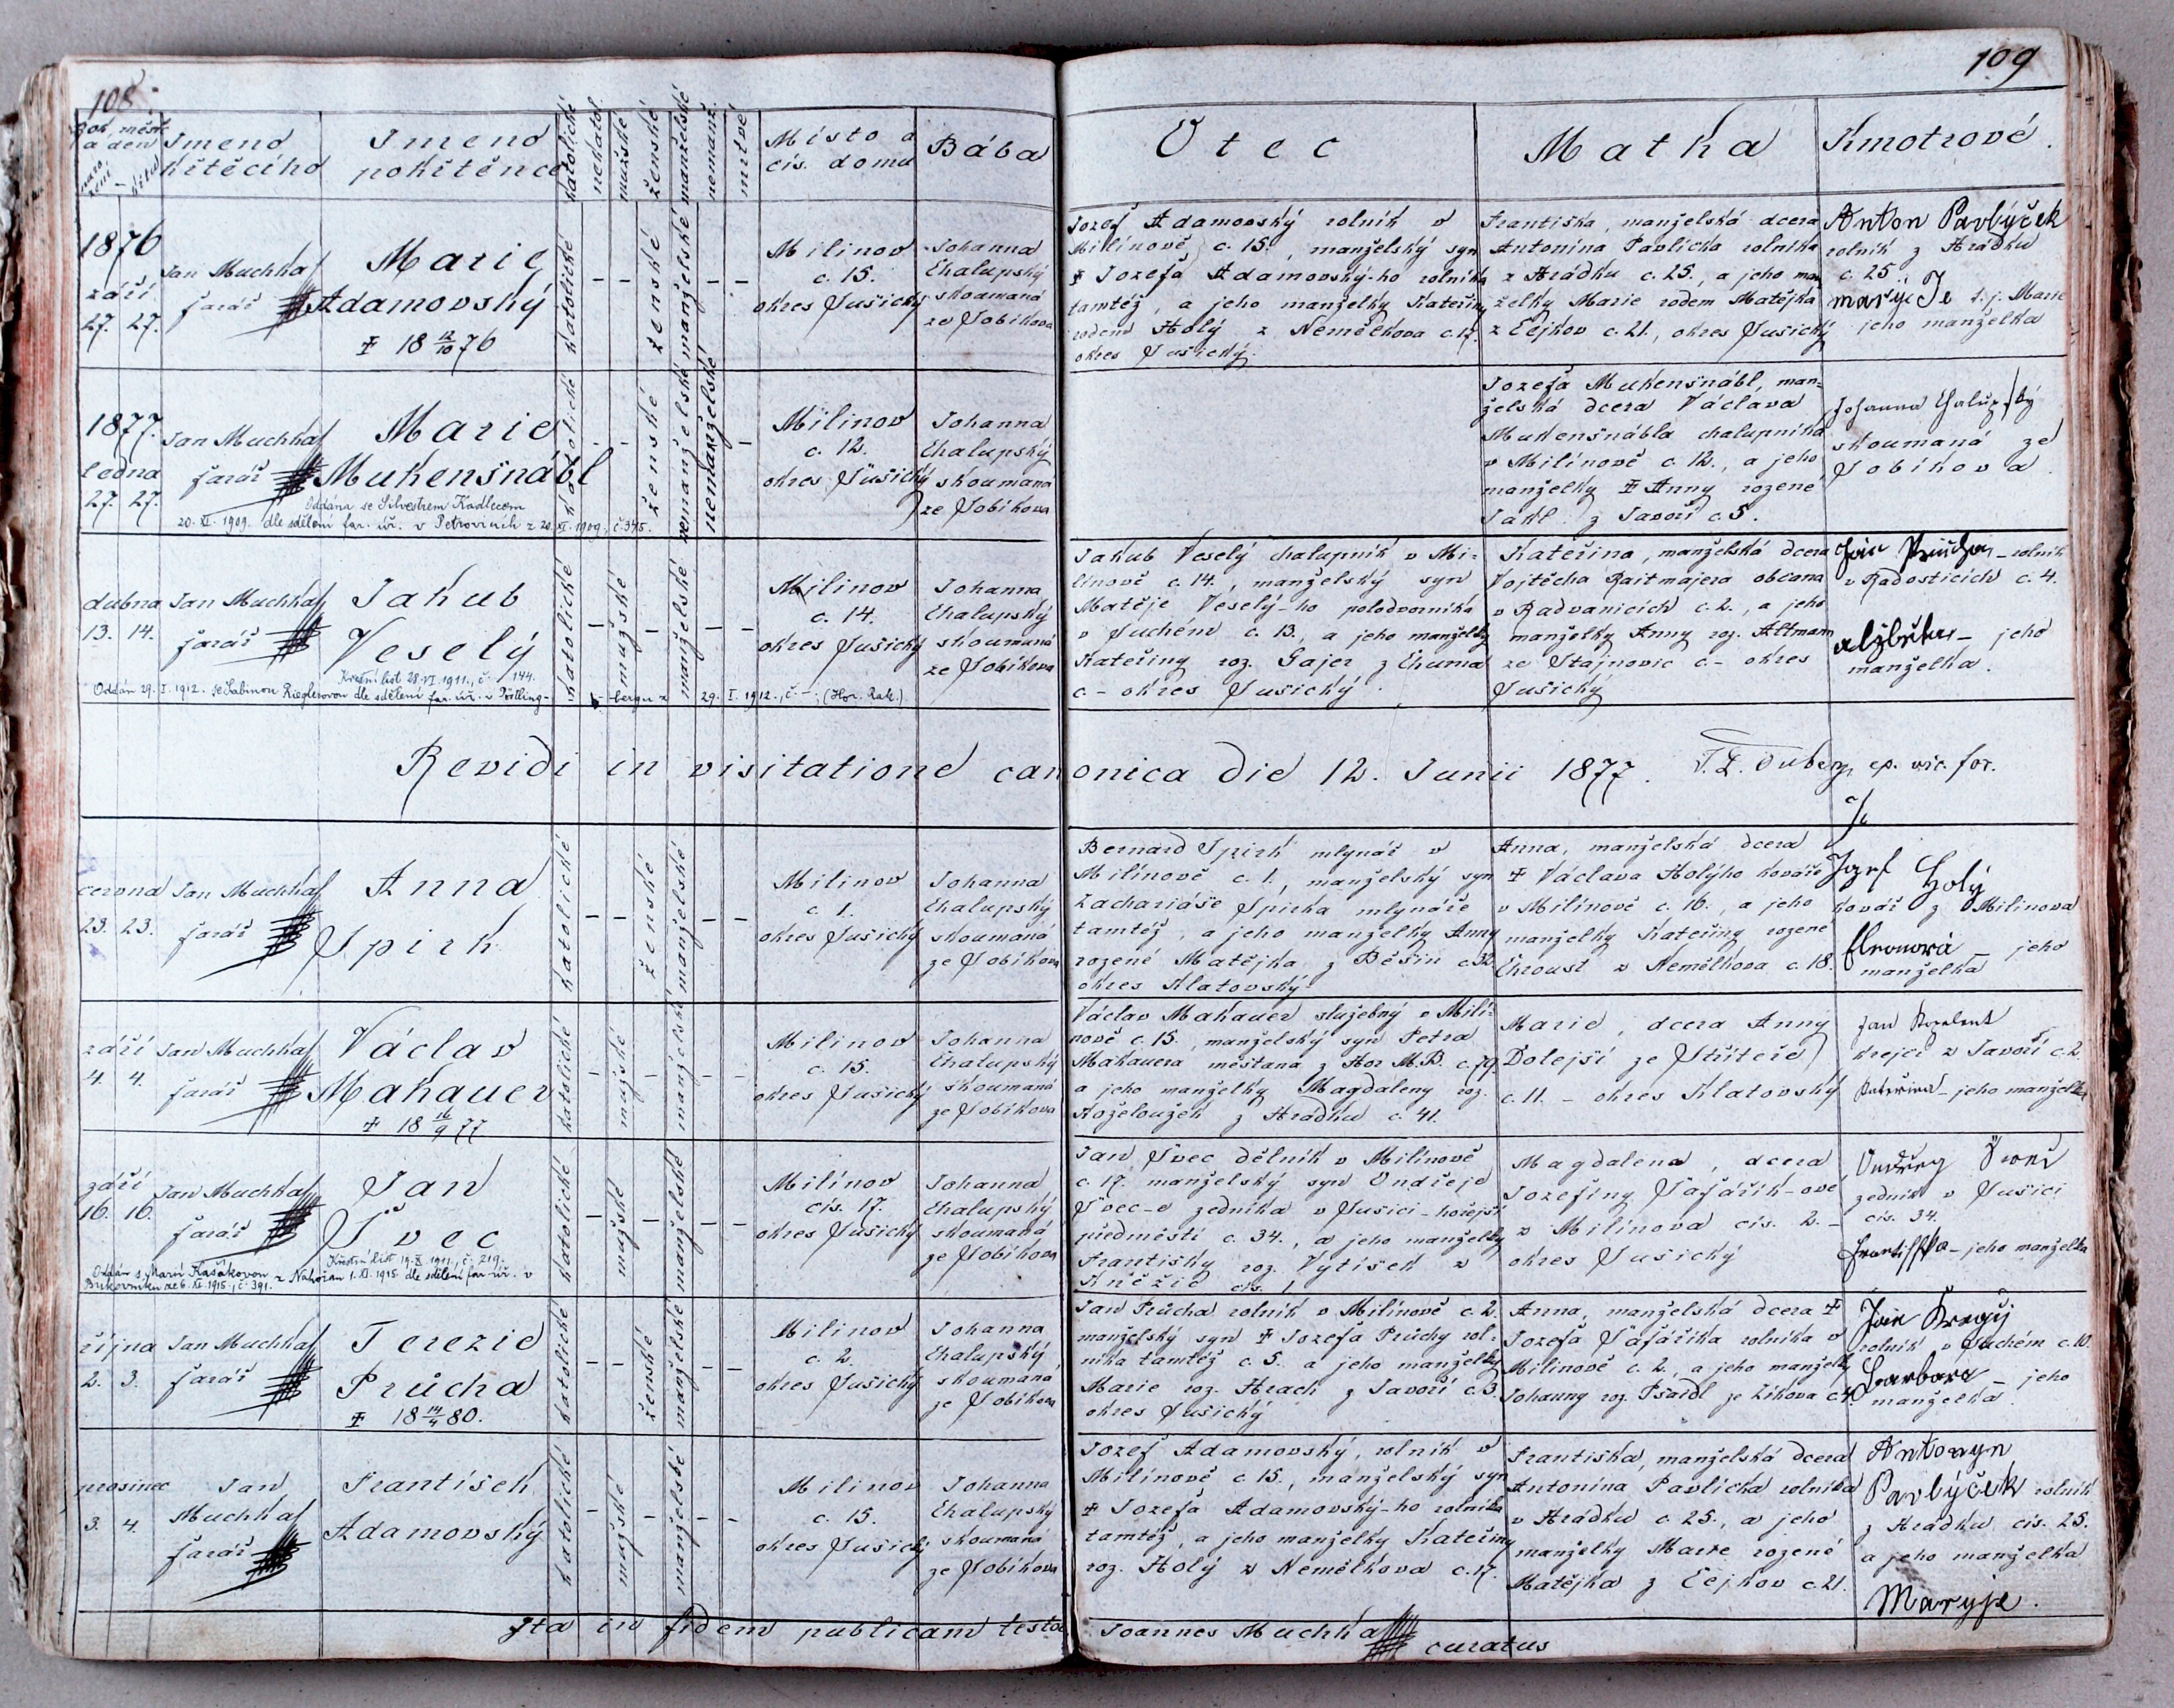 108
109
Rok, měsíc
a den
naro-
zení — křtu
Jmeno
křtěcího
Jmeno
pokřtěnce
katolické
nekatol.
mužské
ženské
manželské
nemanž.
mrtvé
Místo a
čís. domu
Bába
Otec
Matka
Kmotrové.
1876
září
27. 27.
Jan Muchka
farář
Marie
Adamovský
✝ 18 12/10 76
katolické
–
–
ženské
manželské
–
–
Milinov
č. 15.
okres Sušický
Johanna
Chalupský
skoumaná
ze Sobíkova
Jozef Adamovský rolník v
Milínově č. 15., manželský syn
✝ Jozefa Adamovský-ho rolníka
tamtéž, a jeho manželky Kateřiny
rodem Holý z Nemělkova č. 17.
okres Sušický.
Františka, manželská dcera
Antonína Pavlíčka rolníka
z Hrádku č. 25., a jeho man
želky Marie rodem Matějka
z Čejkov č. 21., okres Sušický
Anton Pavlýček
rolník z Hrádku
č. 25
maryje Je t. j. Marie
jeho manželka
1877.
ledna
27. 27.
Jan Muchka
farář
Marie
Mukenšnábl
Oddána se Silvestrem Kadlecem
20. XI. 1909. dle sdělení far. úř. v Petrovicích z 20. XI. 1909., č. 345.
katolické
–
–
ženské
nemanželské
nemanželské
–
Milinov
č. 12.
okres Sušický
Johanna
Chalupský
skoumaná
ze Sobíkova
Jozefa Mukenšnábl, man-
želská dcera Václava
Mukenšnábla chalupníka
v Milínově č. 12., a jeho
manželky ✝ Anny rozené
Jakl z Javoří č. 5.
Johanna Chalupský
skoumaná ze
Sobíkova.
dubna
13. 14.
Jan Muchka
farář
Jakub
Veselý
Křestní list 28. VI. 1911., č. 144.
Oddán 29. I. 1912. se Sabinou Rieglerovou dle sdělení far. úř. v Pötling-
bergu z 29. I. 1912., č. –; (Hor. Rak.)
katolické
–
mužské
–
manželské
–
–
Milinov
č. 14.
okres Sušický
Johanna
Chalupský
skoumaná
ze Sobíkova
Jakub Veselý chalupník v Mi-
línově č. 14., manželský syn
Matěje Veselý-ho polodvorníka
v Suchém č. 13., a jeho manželky
Kateřiny roz. Gajer z Chuma
č – okres Sušický.
Kateřina, manželská dcera
Vojtěcha Raitmajera občana
v Radvanicích č. 2., a jeho
manželky Anny roz. Altman
ze Stajnovic č – okres
Sušický
Jan Průcha – rolník
v Radosticích č. 4.
alžběta – jeho
manželka.
Revidi in visitatione canonica die 12. Junii 1877. ep. vic. for.
června
23. 23.
Jan Muchka
farář
Anna
Spirk
katolické
–
–
ženské
manželské
–
–
Milinov
č. 1.
okres Sušický
Johanna
Chalupský
skoumaná
ze Sobíkova
Bernard Spirk mlynář v
Milínově č. 1., manželský syn
Zachariáše Spirka mlynáře
tamtéž, a jeho manželky Anny
rozené Matějka z Běšin č. 32
okres Klatovský
Anna, manželská dcera
✝ Václava Holýho kováře
v Milínově č. 16., a jeho
manželky Kateřiny rozené
Chroust z Nemělkova č. 18.
Jozef Holý
kovář z Milínova
Eleonora – jeho
manželka
září
4. 4.
Jan Muchka
farář
Václav
Makauer
✝ 18 16/9 77
katolické
–
mužské
–
manželské
–
–
Milinov
č. 15.
okres Sušický
Johanna
Chalupský
skoumaná
ze Sobíkova
Václav Makauer služebný v Milí-
nově č. 15., manželský syn Petra
Makauera měštana z Hor M. B. č. 79.
a jeho manželky Magdaleny roz.
Koželoužek z Hrádku č. 41.
Marie, dcera Anny
Dolejší ze Střiteře
č. 11. – okres Klatovský
Jan
krejčí z Javoří č. 2.
Kateřina – jeho manželka
září
16. 16.
Jan Muchka
farář
Jan
Švec
Křestní list 19. X. 1911., č. 219.
Oddán s Marií Kašákovou z Nahořan 1. XI. 1915. dle sdělení far. úř. v
Bukovníku ze 6. XI. 1915., č. 391.
katolické
–
mužské
–
manželské
–
–
Milínov
čís. 17.
okres Sušický
Johanna
Chalupský
skoumaná
ze Sobíkova
Jan Švec dělník v Milínově
č. 17. manželský syn Ondřeje
Švec-e zedníka v Sušici hořejší
předměstí č. 34., a jeho manželky
Františky roz. Vytisek z
Kněžic čís. 1
Magdalena, dcera
Jozefiny Šafářík-ové
z Milínova čís. 2. –
okres Sušický
Ondřeg Šwec
zedník v Sušici
čís. 34.
Frantisska – jeho manželka
října
2. 3.
Jan Muchka
farář
Terezie
Průcha
✝ 18 14/4 80.
katolické
–
–
ženské
manželské
–
–
Milinov
č. 2.
okres Sušický
Johanna
Chalupský
skoumaná
ze Sobíkova
Jan Průcha rolník v Milínově č. 2.
manželský syn ✝ Jozefa Průchy rol-
níka tamtéž č. 5. a jeho manželky
Marie roz. Hrach z Javoří č. 3.
okres Sušický
Anna, manželská dcera ✝
Jozefa Šafaříka rolníka v
Milínově č. 2., a jeho manželky
Johanny roz. Psaidl ze Zíkova č. 4.
Jan Kregčj
rolník v Suchém č. 10.
Barbora – jeho
manželka
prosinec
3. 4.
Jan
Muchka
farář
František
Adamovský
katolické
–
mužské
–
manželské
–
–
Milinov
č. 15.
okres Sušický
Johanna
Chalupský
skoumaná
ze Sobíkova
Jozef Adamovský, rolník v
Milínově č 15., manželský syn
✝ Jozefa Adamovský-ho rolníka
tamtéž, a jeho manželky Kateřiny
roz. Holý z Nemělkova č. 17.
Františka, manželská dcera
Antonína Pavlíčka rolníka
v Hrádku č. 25., a jeho
manželky Marie rozené
Matějka z Čejkov č. 21.
Antonyn
Pavlýček rolník
z Hrádku čís. 25.
a jeho manželka
Maryje.
Ita in fidem publicam testor Joannes Muchka
curatus